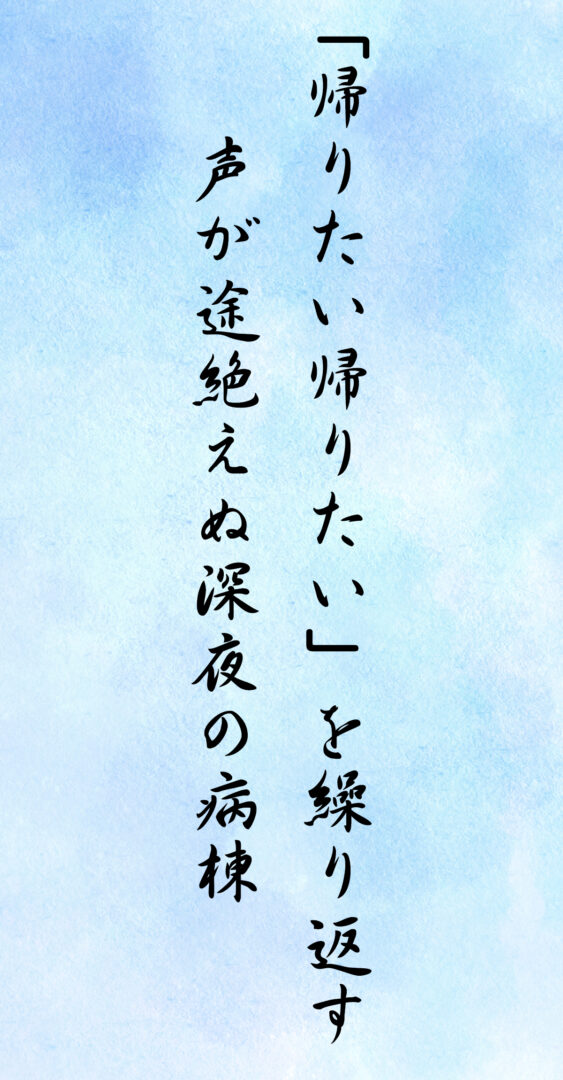 「帰りたい帰りたい」を繰り返す
声が途絶えぬ深夜の病棟